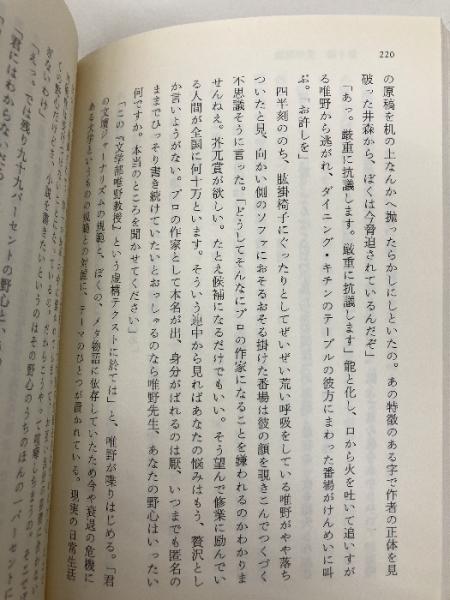 220
の原稿を机の上なんかへ抛ったらかしにしといたの。あの特徴のある字で作者の正体を見
破った井森から、ぼくは今脅迫されているんだぞ」
「あっ。厳重に抗議します。厳重に抗議します」龍と化し、口から火を吐いて追いすが
る唯野から逃がれ、ダイニング・キチンのテーブルの彼方にまわった番場がけんめいに叫
ぶ。「お許しを」
四半刻ののち、肱掛椅子にぐったりとしてぜいぜい荒い呼吸をしている唯野がやや落ち
ついたと見、向かい側のソファにおそるおそる掛けた番場は彼の顔を覗きこんでつくづく
不思議そうに言った。「どうしてそんなにプロの作家になることを嫌われるのかわかりま
せんねえ。芥兀賞が欲しい。たとえ候補になるだけでもいい。そう望んで修業に励んでい
る人間が全国に何十万といます。そういう連中から見ればあなたの悩みはもう、贅沢とし
か言いようがない。プロの作家として本名が出、身分がばれるのは厭、いつまでも匿名の
ままでひっそり書き続けていたいとおっしゃるのなら唯野先生、あなたの野心はいったい
何ですか。本当のところを聞かせてください」
「この『文学部唯野教授』という虚構テクストに於ては」と、唯野が喋りはじめる。「君
の文壇ジャーナリズムの規範と、ぼくの、メタ物語に依存していたため今や衰退の危機に
ある文学というものの規範との対立に、テーマのひとつが置かれている。現実の日常生活